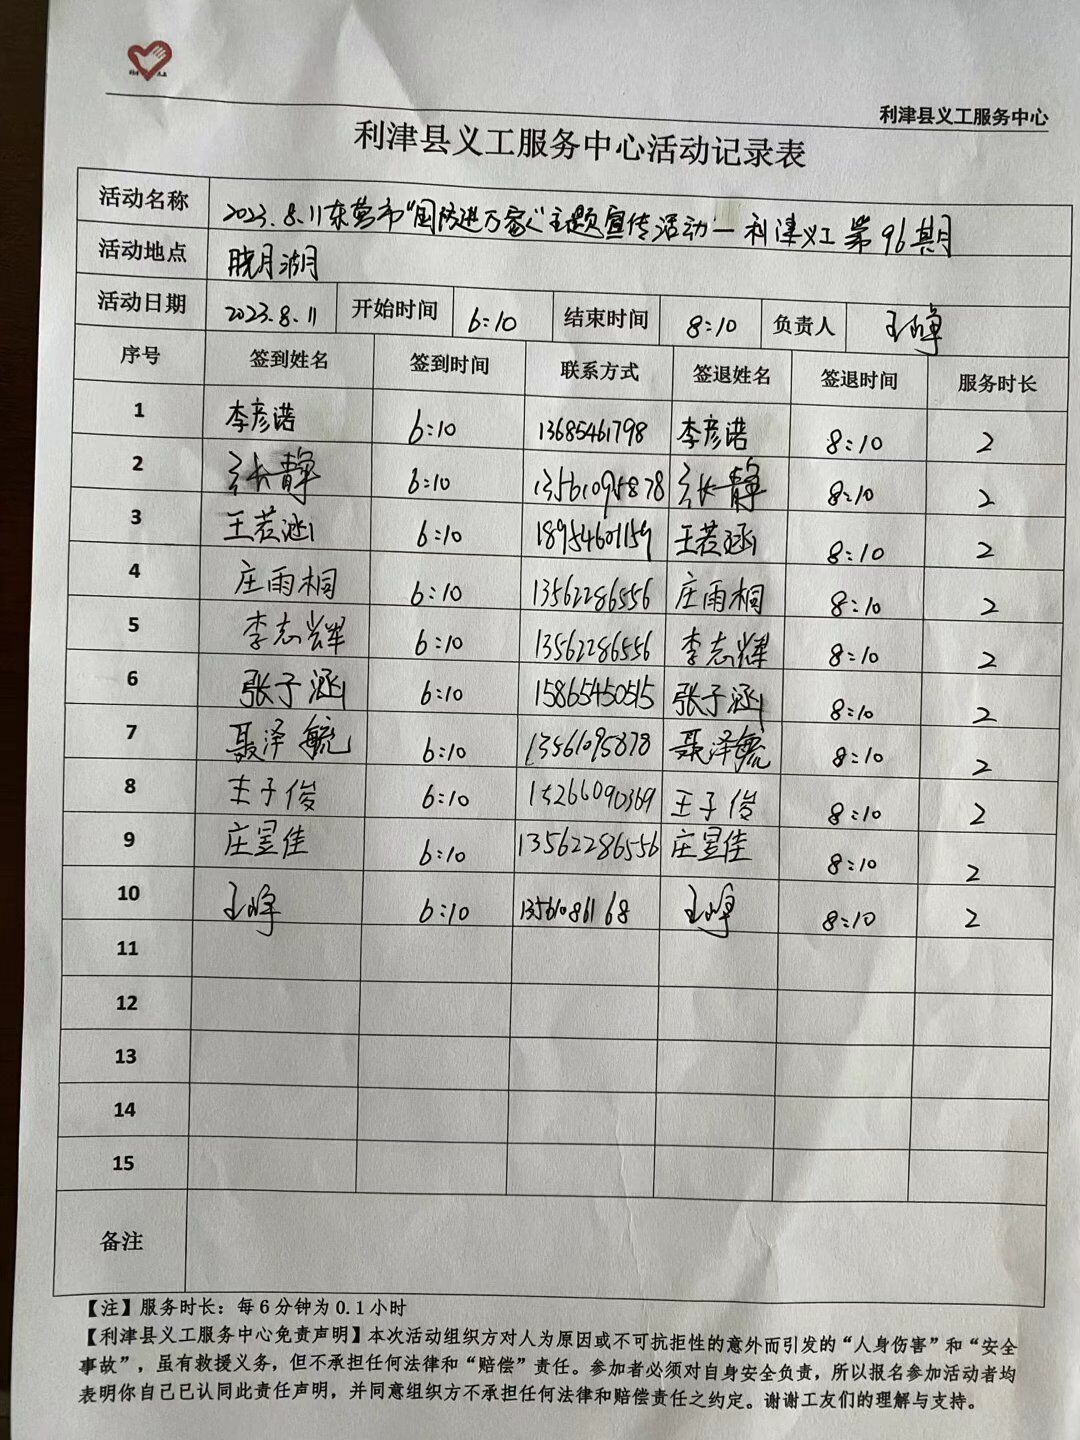 利津县义工服务中心
利津县义工服务中心活动记录表
活动名称 2023.8.11东营市“国防进万家”主题宣传活动—利津义工第96期
活动地点 晓月湖
活动日期 2023.8.11 开始时间 6:10 结束时间 8:10 负责人 王峥
序号 签到姓名 签到时间 联系方式 签退姓名 签退时间 服务时长
1 李彦诺 6:10 13685461798 李彦诺 8:10 2
2 张静 6:10 13561095878 张静 8:10 2
3 王若涵 6:10 18954601159 王若涵 8:10 2
4 庄雨桐 6:10 13562286556 庄雨桐 8:10 2
5 李志辉 6:10 13562286556 李志辉 8:10 2
6 张子涵 6:10 15865450515 张子涵 8:10 2
7 聂泽毓 6:10 13561095878 聂泽毓 8:10 2
8 王子俊 6:10 15266090369 王子俊 8:10 2
9 庄昱佳 6:10 13562286556 庄昱佳 8:10 2
10 王峥 6:10 13561086168 王峥 8:10 2
11
12
13
14
15
备注
【注】服务时长：每6分钟为0.1小时
【利津县义工服务中心免责声明】本次活动组织方对人为原因或不可抗拒性的意外而引发的“人身伤害”和“安全
事故”，虽有救援义务，但不承担任何法律和“赔偿”责任。参加者必须对自身安全负责，所以报名参加活动者均
表明你自己已认同此责任声明，并同意组织方不承担任何法律和赔偿责任之约定。谢谢工友们的理解与支持。